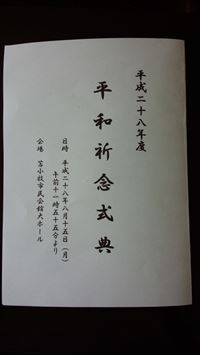 平成二十八年度
平和祈念式典
日時　平成二十八年八月十五日（月）
午前十一時五十五分より
会場　苫小牧市民会館大ホール